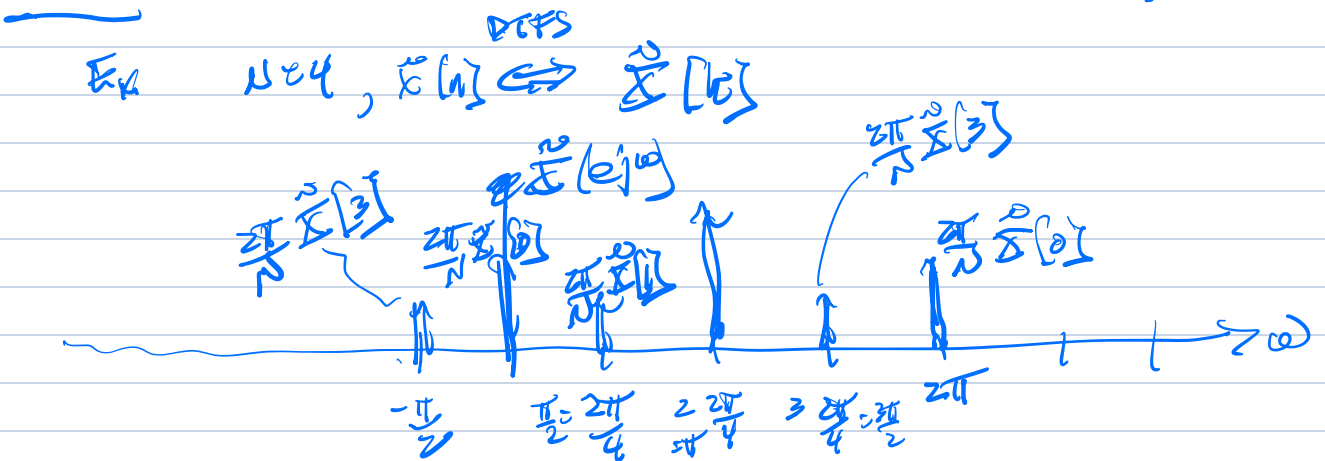 DTFS
Ex N=4, x̃[n] ⟺ X̃[k]
X̃(e^jω)
2π/N X̃[3]
2π/N X̃[3] 2π/N X̃[0] 2π/N X̃[1] 2π/N X̃[0]
ω
-π/2 π/2 = 2π/4 2 2π/4 = π 3 2π/4 = 3π/2 2π